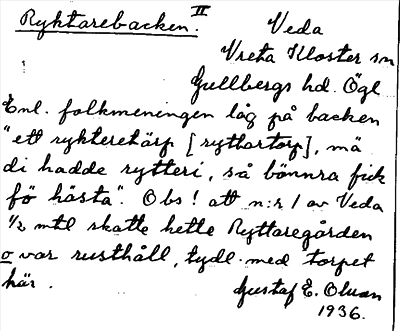 Ryktarebacken. II
Veda
Vreta Kloster sn
Gullbergs hd. Ögl
Enl. folkmeningen låg på backen
"ett rykteretärp [ryttartorp], mä
di hadde rytteri, så bönnra fick
fö hästa". Obs! att n:r 1 av Veda
1/2 mtl skatte hette Ryttaregården
o var rusthåll, tydl. med torpet
här.
Gustaf E. Olsson
1936.